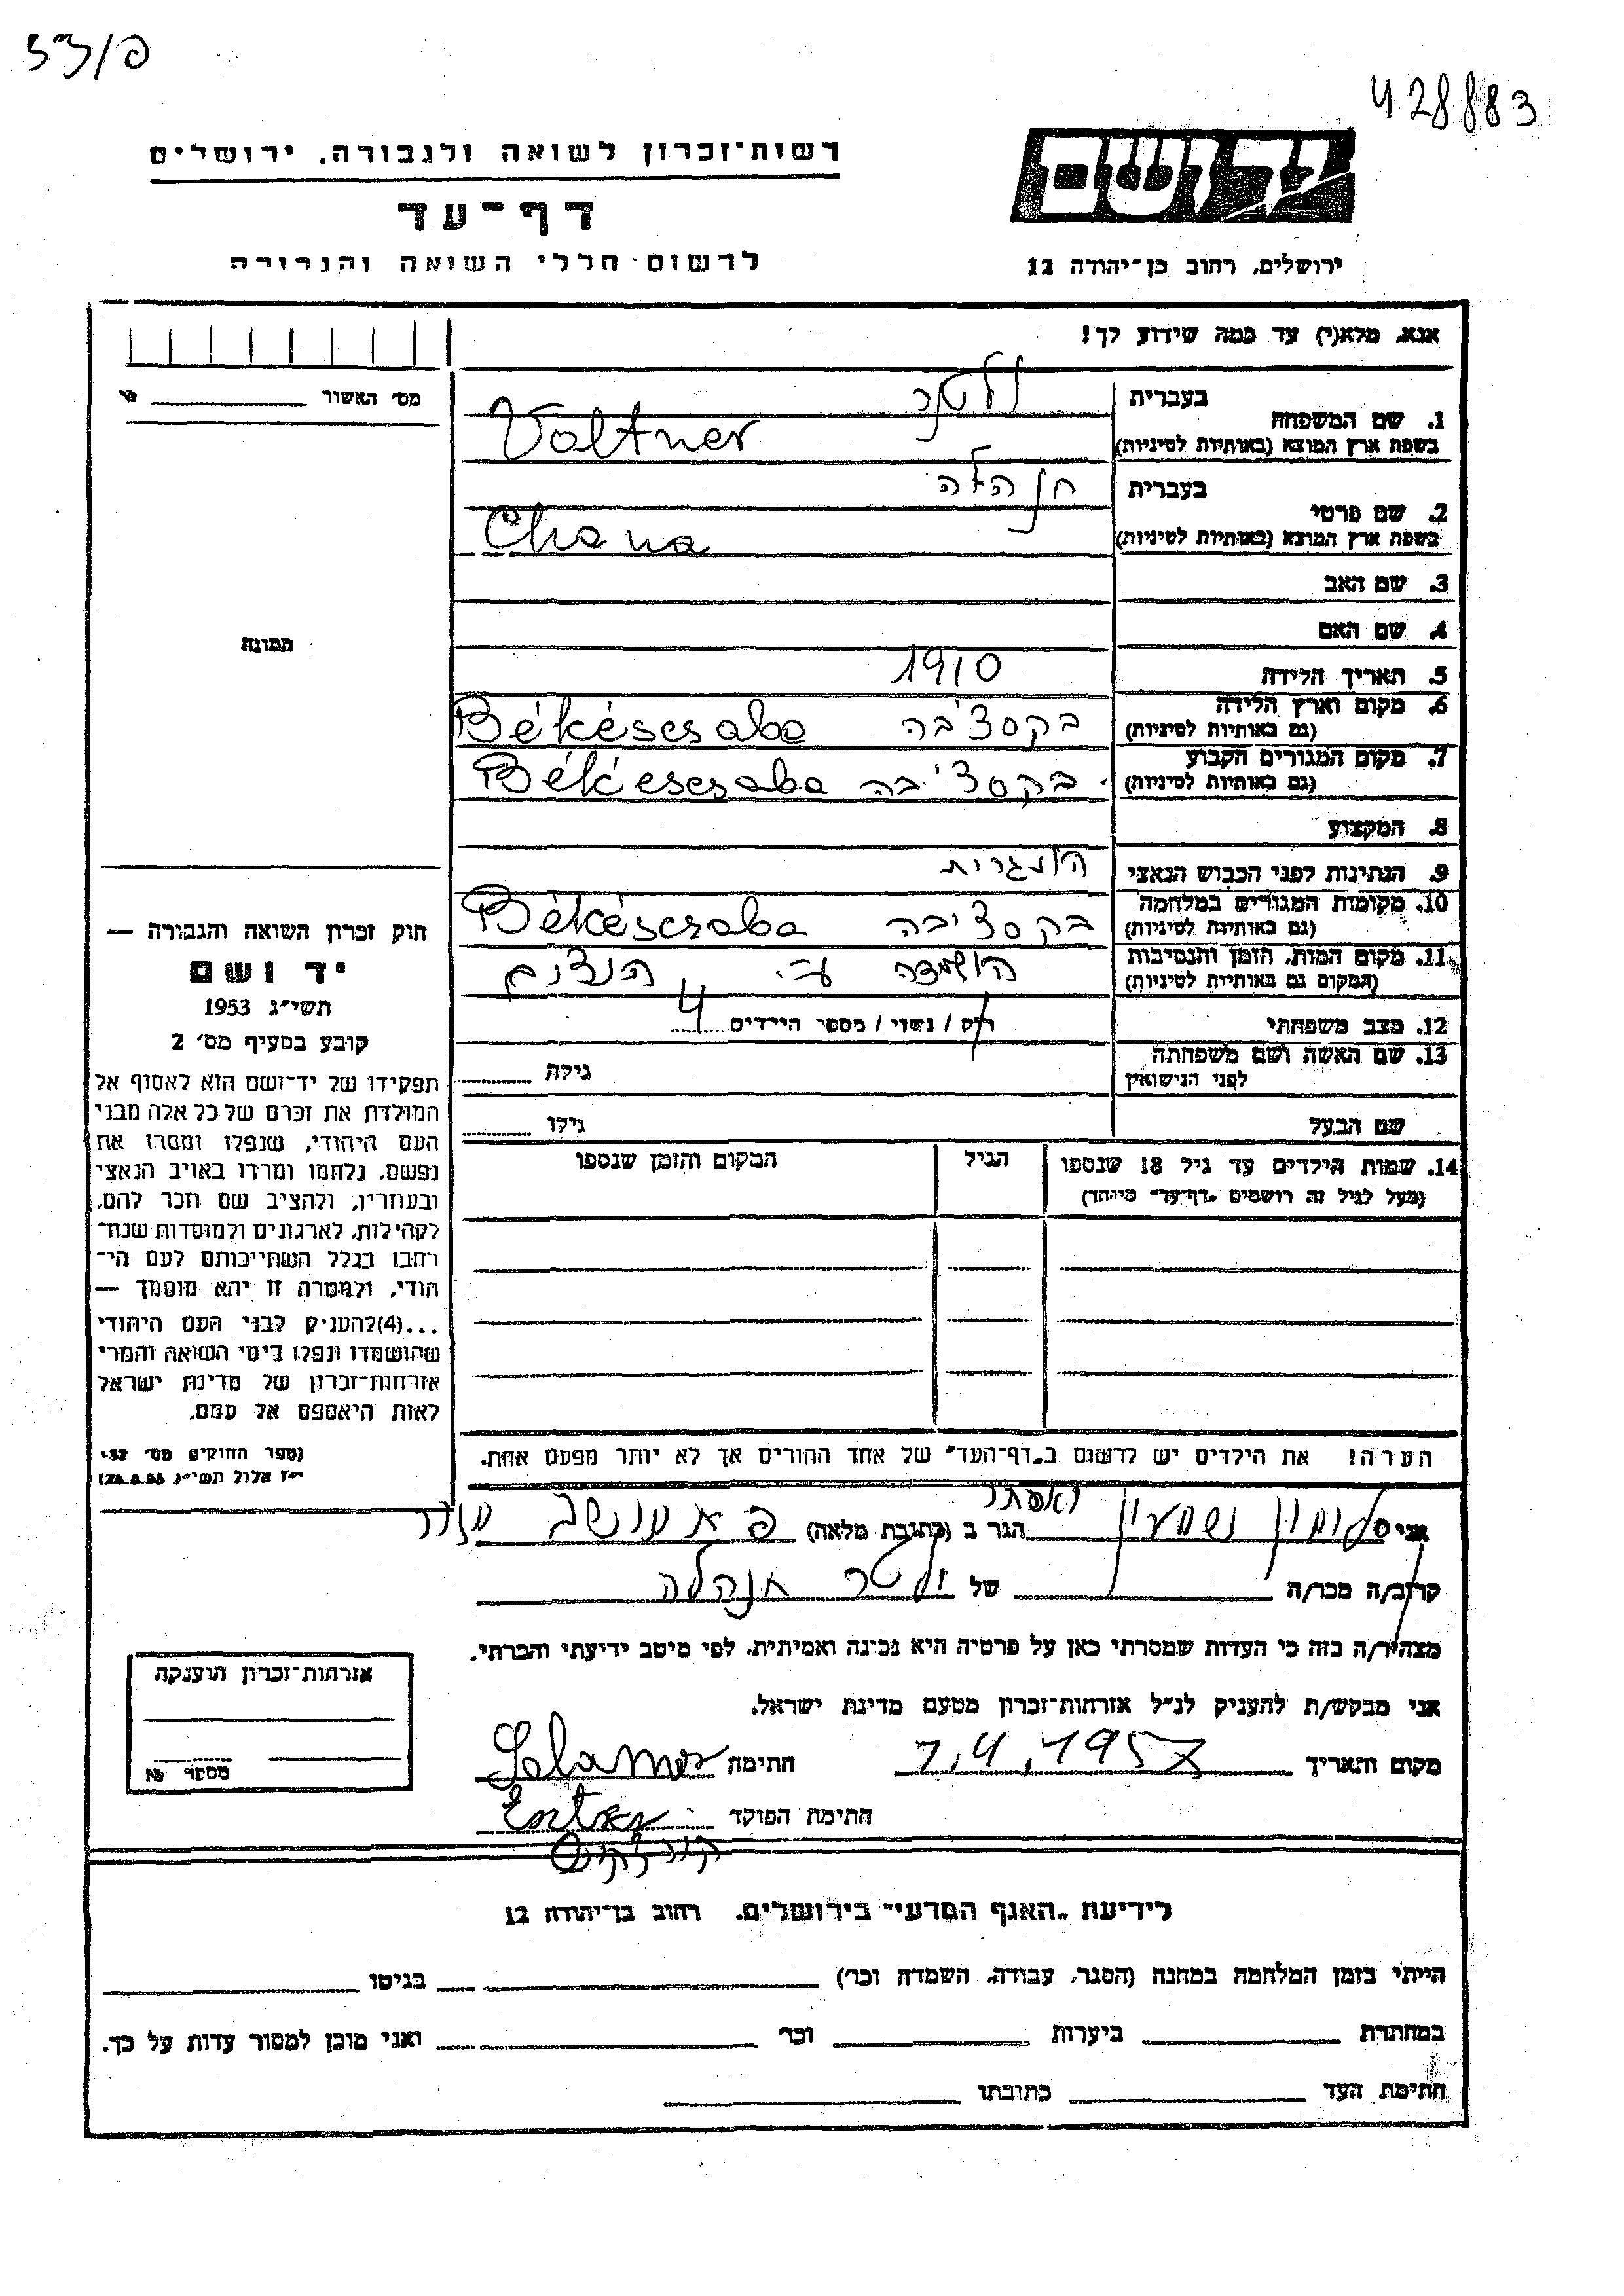 428883
רשות-זכרון לשואה ולגבורה, ירושלים
דף-עד
לרשום חללי השואה והגבורה
יד ושם
ירושלים, רחוב בן-יהודה 12
אנא, מלא(י) עד כמה שידוע לך!
מס' האשור
1. שם המשפחה
בעברית ולטנר
בשפת ארץ המוצא (באותיות לטיניות) Voltner
2. שם פרטי
בעברית חנהלה
בשפת ארץ המוצא (באותיות לטיניות) Chana
3. שם האב
4. שם האם
5. תאריך הלידה 1910
6. מקום וארץ הלידה
(גם באותיות לטיניות) בקסצ'בה Békéscsaba
7. מקום המגורים הקבוע
(גם באותיות לטיניות) בקסצ'בה Békéscsaba
8. המקצוע
9. הנתינות לפני הכבוש הנאצי הונגרית
10. מקומות המגורים במלחמה
(גם באותיות לטיניות) בקסציבה Békéscsaba
11. מקום המות, הזמן והנסיבות
(המקום גם באותיות לטיניות) הושמדה ע"י הנצים
12. מצב משפחתי רוק / נשוי / מספר הילדים 4
13. שם האשה ושם משפחתה
לפני הנישואין גילה
שם הבעל גילו
14. שמות הילדים עד גיל 18 שנספו הגיל המקום והזמן שנספו
(מעל לגיל זה רושמים "דף-עד" מיוחד)
הערה: את הילדים יש לרשום ב"דף-העד" של אחד ההורים אך לא יותר מפעם אחת.
תמונה
חוק זכרון השואה והגבורה —
יד ושם
תשי"ג 1953
קובע בסעיף מס' 2
תפקידו של יד-ושם הוא לאסוף אל
המולדת את זכרם של כל אלה מבני
העם היהודי, שנפלו ומסרו את
נפשם, נלחמו ומרדו באויב הנאצי
ובעוזריו, ולהציב שם וזכר להם,
לקהילות, לארגונים ולמוסדות שנח-
רבו בגלל השתייכותם לעם הי-
הודי, ולמטרה זו יהא מוסמך —
...(4) להעניק לבני העם היהודי
שהושמדו ונפלו בימי השואה והמרי
אזרחות-זכרון של מדינת ישראל
לאות היאספם אל עמם.
(ספר החוקים מס' 132
י"ז אלול תשי"ג 28.8.53)
ואסתר
אני סלומון ושמעון הגר ב (כתובת מלאה) מושב
קרוב/ה מכר/ה של ולטר חנהלה
מצהיר/ה בזה כי העדות שמסרתי כאן על פרטיה היא נכונה ואמיתית, לפי מיטב ידיעתי והכרתי.
אני מבקש/ת להעניק לנ"ל אזרחות-זכרון מטעם מדינת ישראל.
מקום ותאריך 7.4.1957 חתימה
חתימת הפוקד
אזרחות-זכרון הוענקה
מספר №
לידיעת "האגף המדעי" בירושלים, רחוב בן-יהודה 12
הייתי בזמן המלחמה במחנה (הסגר, עבודה, השמדה וכו') בגיטו
במחתרת ביערות וכו' ואני מוכן למסור עדות על כך.
חתימת העד כתובתו